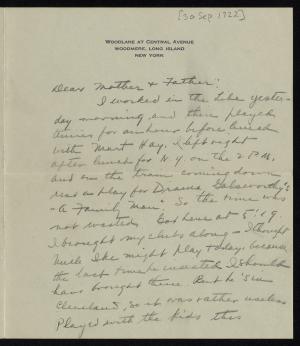 [30 Sep 1922]
WOODLANE AT CENTRAL AVENUE
WOODMERE, LONG ISLAND
NEW YORK
Dear Mother & Father:
I worked in the Libe yester-
day morning and then played
tennis for an hour before lunch
with Mart Hay. I left right
after lunch for N.Y. on the 2 P.M.
and on the train coming down
read a play for Drama, Galsworthy's
"A Family Man". So the time was
not wasted. Got here at 5:19.
I brought my clubs along - I thought
Uncle Ike might play today, because
the last time he wanted I should
have brought them. But he's in
Cleveland, so it was rather useless.
Played with the kids this